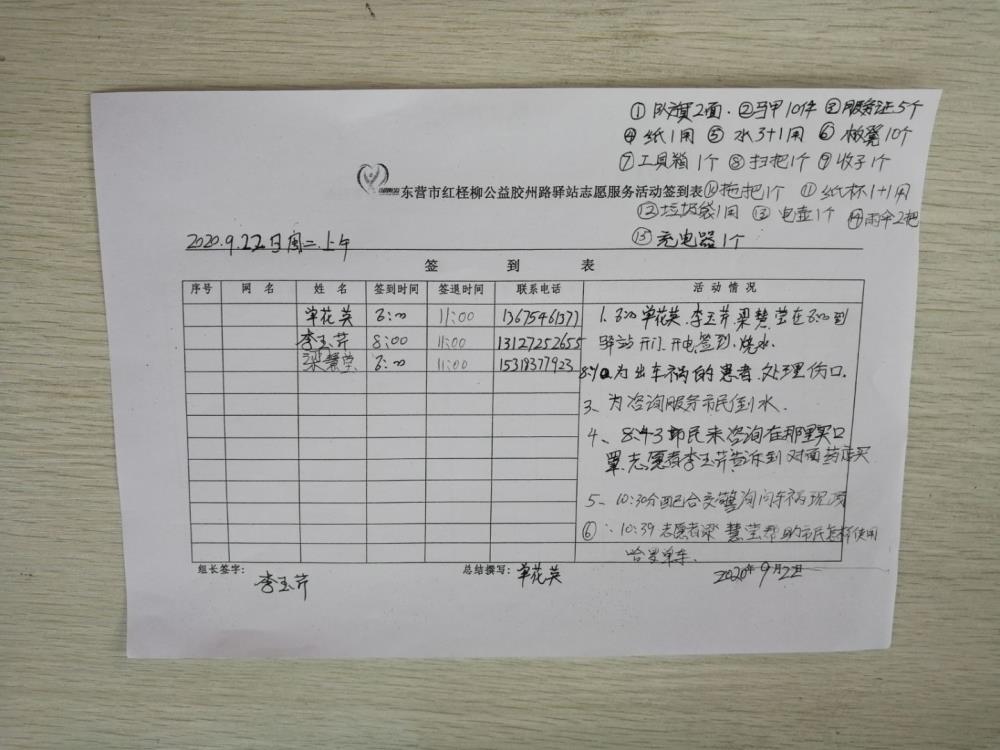 ①队旗2面.②马甲10件③服务证5个
④纸1用⑤水3+1用⑥板凳10个
⑦工具箱1个⑧扫把1个⑨收子1个
东营市红柽柳公益胶州路驿站志愿服务活动签到表⑩拖把1个⑪纸杯1+1用
⑫垃圾袋1用⑬电壶1个⑭雨伞2把
2020.9.22日周二上午 ⑮充电器1个
签到表
序号 网名 姓名 签到时间 签退时间 联系电话 活动情况
单花英 8:00 11:00 13675461377
李玉芹 8:00 11:00 13127252655
梁慧莹 8:00 11:00 15318377923
1.8:00单花英.李玉芹梁慧莹在8:00到
驿站开门.开电签到.烧水.
为出车祸的患者.处理伤口.
3、为咨询服务市民倒水.
4、8:43市民来咨询在那里买口
罩.志愿者李玉芹告诉到对面药店买
5、10:30分配合交警询问车祸现场
⑥:10:39志愿者梁慧莹帮助市民怎样使用
哈罗单车.
组长签字:李玉芹 总结撰写:单花英 2020年9月22日